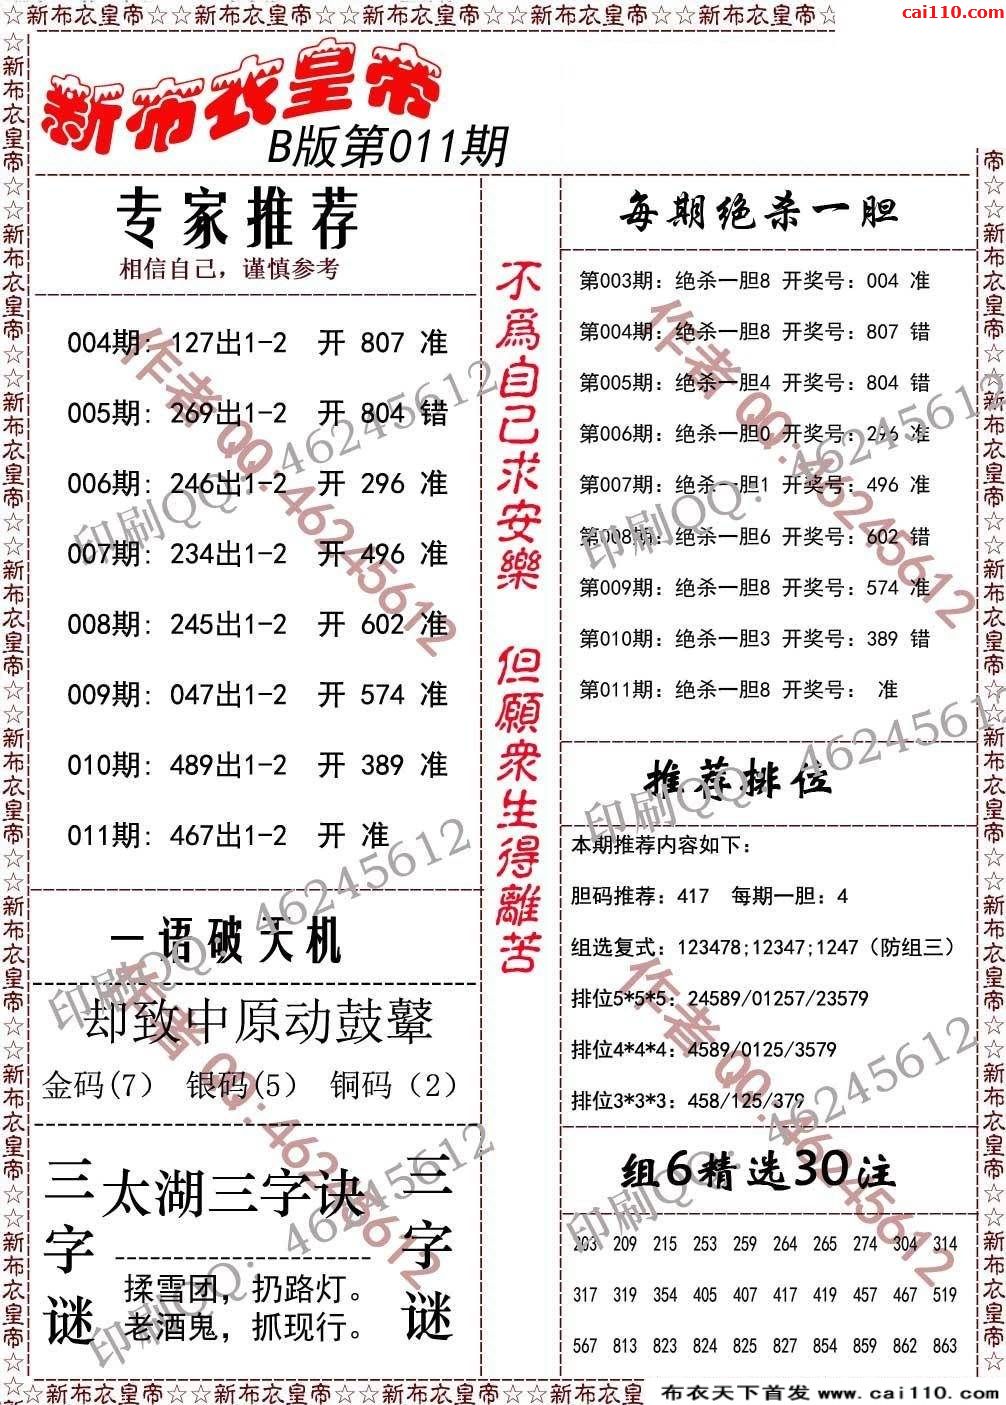 ☆新布衣皇帝☆新布衣皇帝☆新布衣皇帝☆新布衣皇帝☆新布衣皇帝☆新布衣皇帝☆
cai110.com
新布衣皇帝
B版第011期
专家推荐
相信自己，谨慎参考
004期: 127出1-2 开 807 准
005期: 269出1-2 开 804 错
006期: 246出1-2 开 296 准
007期: 234出1-2 开 496 准
008期: 245出1-2 开 602 准
009期: 047出1-2 开 574 准
010期: 489出1-2 开 389 准
011期: 467出1-2 开 准
一语破天机
却致中原动鼓鼙
金码(7) 银码(5) 铜码（2）
三字谜
太湖三字诀
揉雪团，扔路灯。
老酒鬼，抓现行。
三字谜
不為自己求安樂 但願衆生得離苦
每期绝杀一胆
第003期：绝杀一胆8 开奖号：004 准
第004期：绝杀一胆8 开奖号：807 错
第005期：绝杀一胆4 开奖号：804 错
第006期：绝杀一胆0 开奖号：296 准
第007期：绝杀一胆1 开奖号：496 准
第008期：绝杀一胆6 开奖号：602 错
第009期：绝杀一胆8 开奖号：574 准
第010期：绝杀一胆3 开奖号：389 错
第011期：绝杀一胆8 开奖号： 准
推荐排位
本期推荐内容如下：
胆码推荐：417 每期一胆：4
组选复式：123478;12347;1247（防组三）
排位5*5*5：24589/01257/23579
排位4*4*4：4589/0125/3579
排位3*3*3：458/125/379
组6精选30注
203 209 215 253 259 264 265 274 304 314
317 319 354 405 407 417 419 457 467 519
567 813 823 824 825 827 854 859 862 863
作者QQ:46245612
印刷QQ：46245612
作者QQ:46245612
印刷QQ：46245612
印刷QQ：46245612
印刷QQ：46245612
作者QQ:46245612
作者QQ:46245612
印刷QQ：46245612
印刷QQ：46245612
☆新布衣皇帝☆新布衣皇帝☆新布衣皇帝☆新布衣皇帝☆新布衣皇
布衣天下首发www.cai110.com